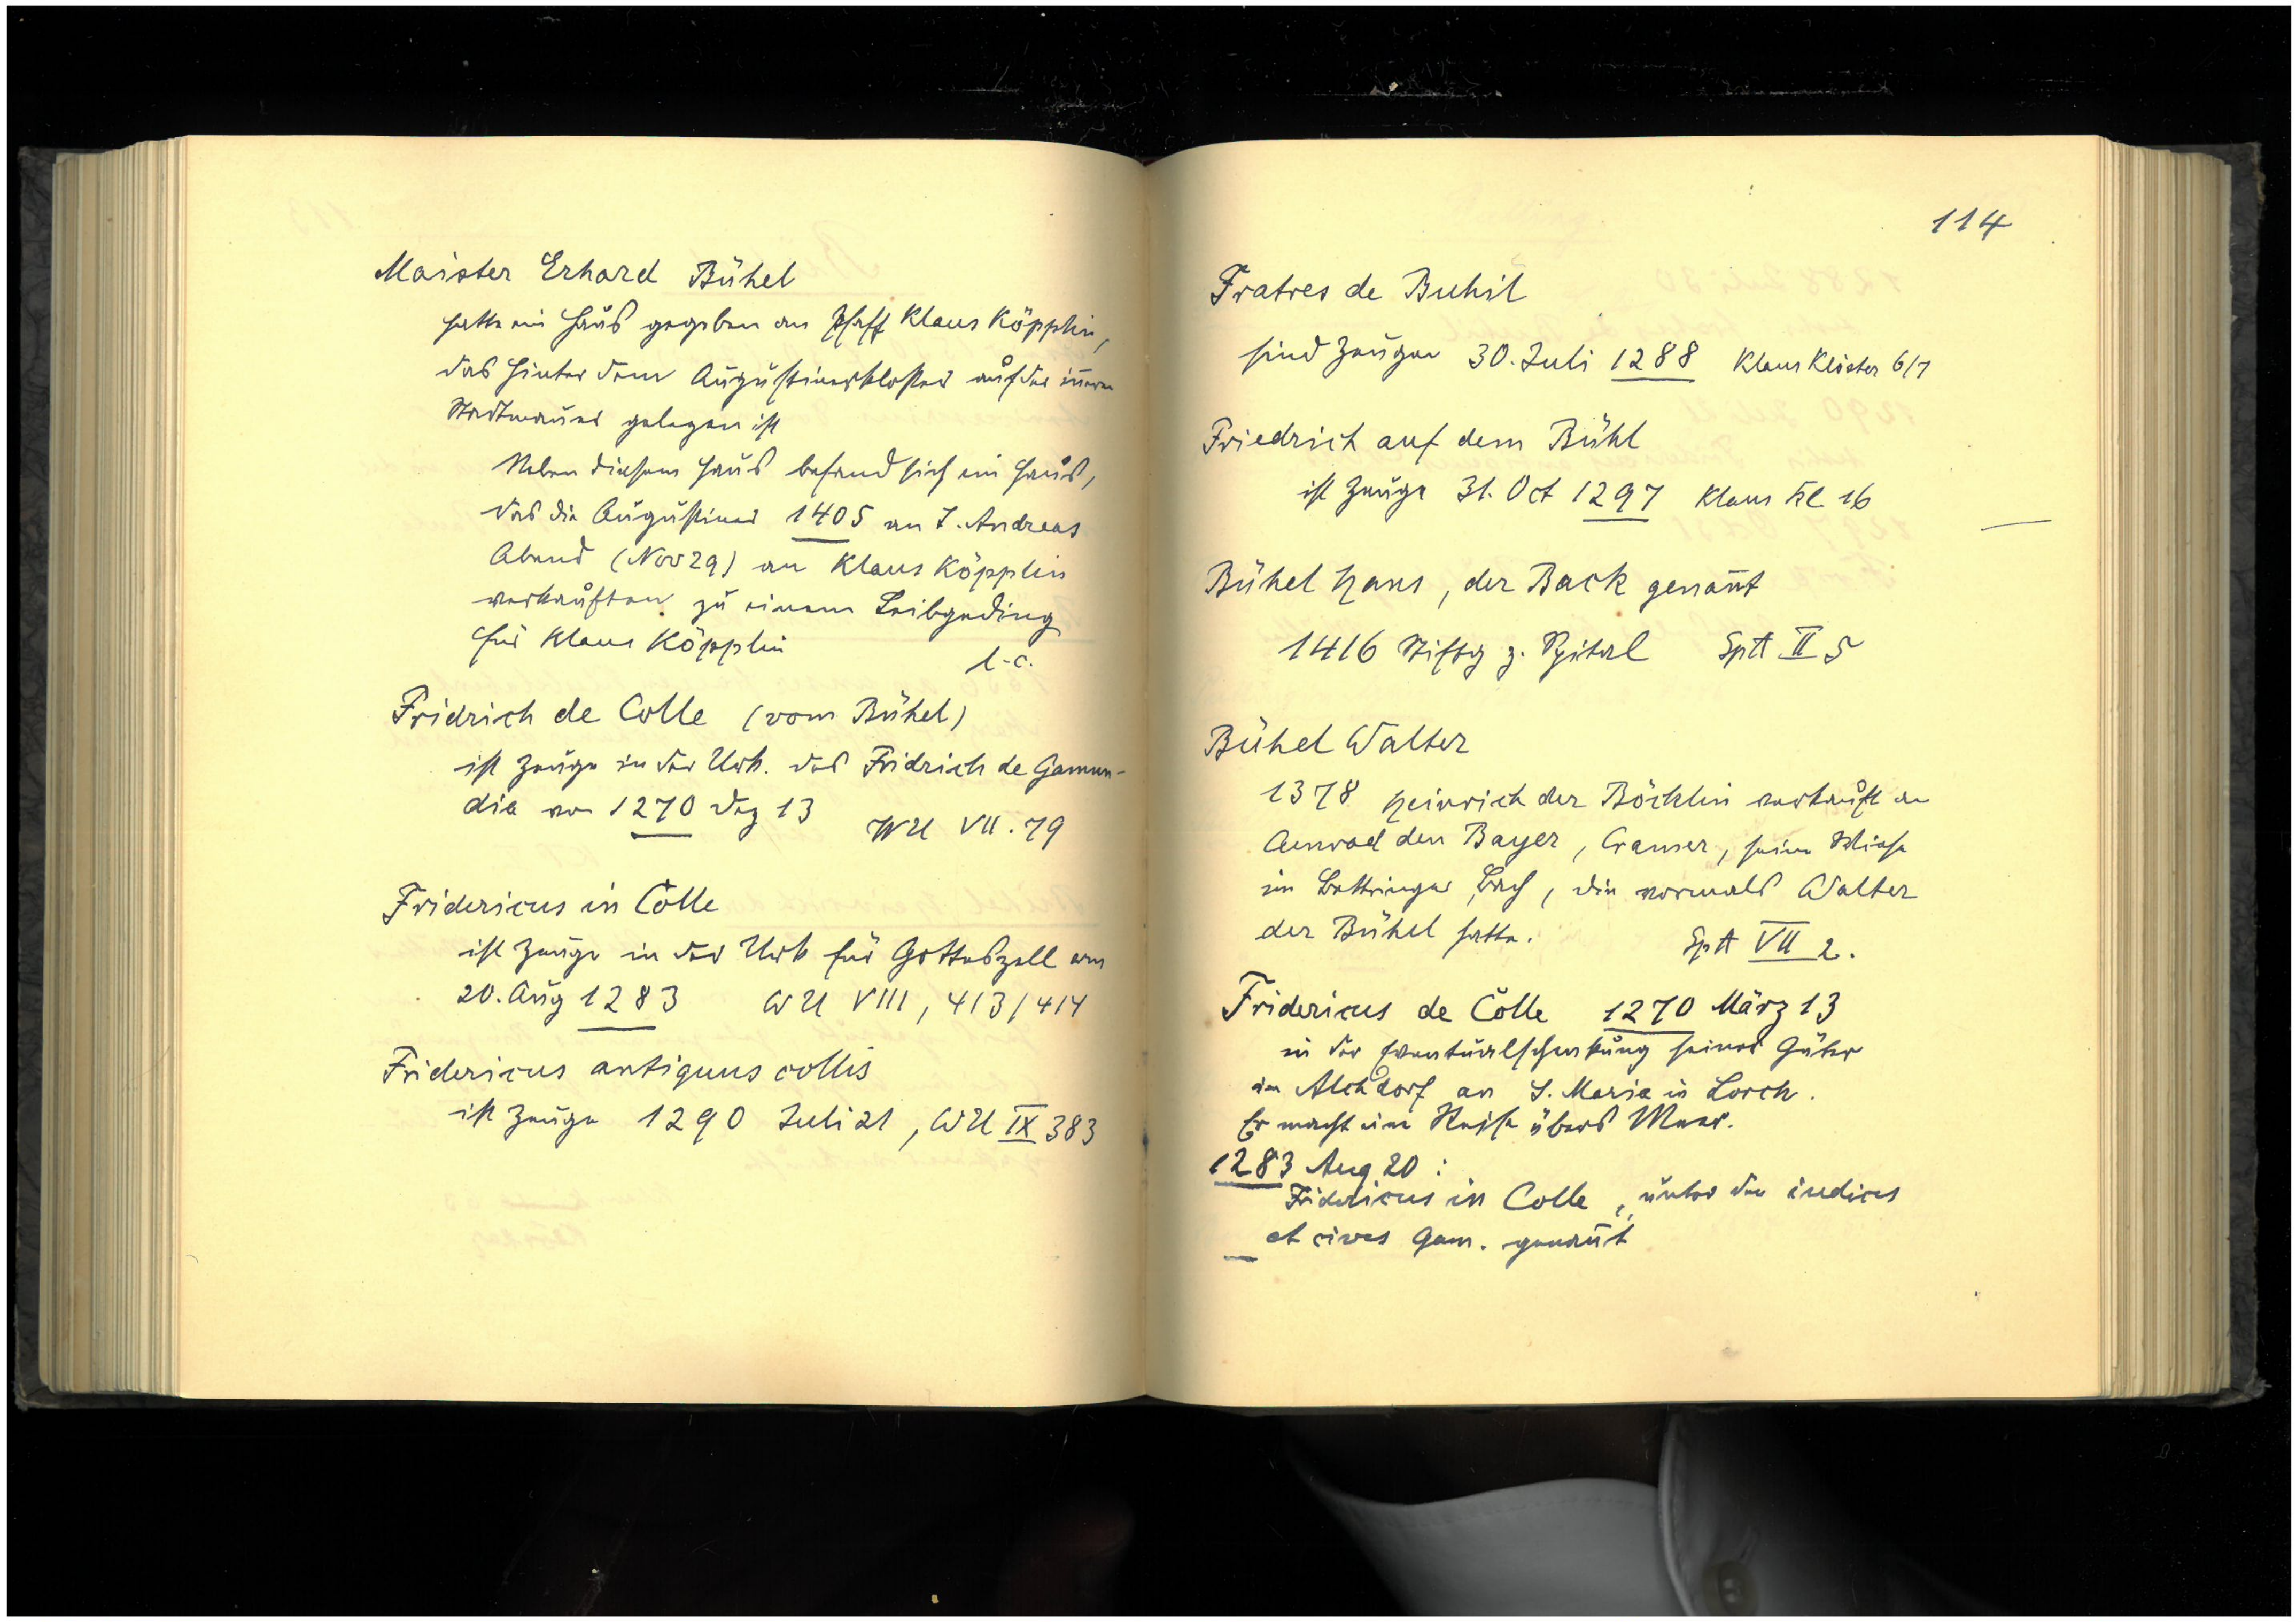 Maister Erhard Bühel
hatte ein Haus gegeben an Pfaff Klaus Köpplin,
das hinter dem Augustinerkloster auf der innern
Stadtmauer gelegen ist
Neben diesem Haus befand sich ein Haus,
das die Augustiner 1405 an S. Andreas
Abend (Nov 29) an Klaus Köpplin
verkauften zu einem Leibgeding
für Klaus Köpplin
l.c.
Fridrich de Colle (vom Bühel)
ist Zeuge in der Urk. des Fridrich de Gamun-
dia von 1270 Dez 13
WU VII. 79
Fridericus in Colle
ist Zeuge in der Urk für Gotteszell am
20. Aug 1283 WU VIII, 413/414
Fridericus antiquus collis
ist Zeuge 1290 Juli 21, WU IX 383
114
Fratres de Buhil
sind Zeugen 30. Juli 1288 Klaus Klöster 6/7
Friedrich auf dem Bühl
ist Zeuge 31. Oct 1297 Klaus Kl 16
Bühel Hans, der Back genan̄t
1416 Stiftg z. Spital SptA II 5
Bühel Walter
1378 Heinrich der Böcklin verkauft an
Conrad den Bayer, Cramer, seine Wiese
im Bettringer Bach, die vormals Walter
der Bühel hatte.
SptA VII 2.
Fridericus de Colle 1270 März 13
in der Eventualschenkung seiner Güter
in Alchdorf an S. Maria in Lorch.
Er macht eine Reise übers Meer.
1283 Aug 20:
Fridericus in Colle, unter den iudices
et cives Gam. genan̄t